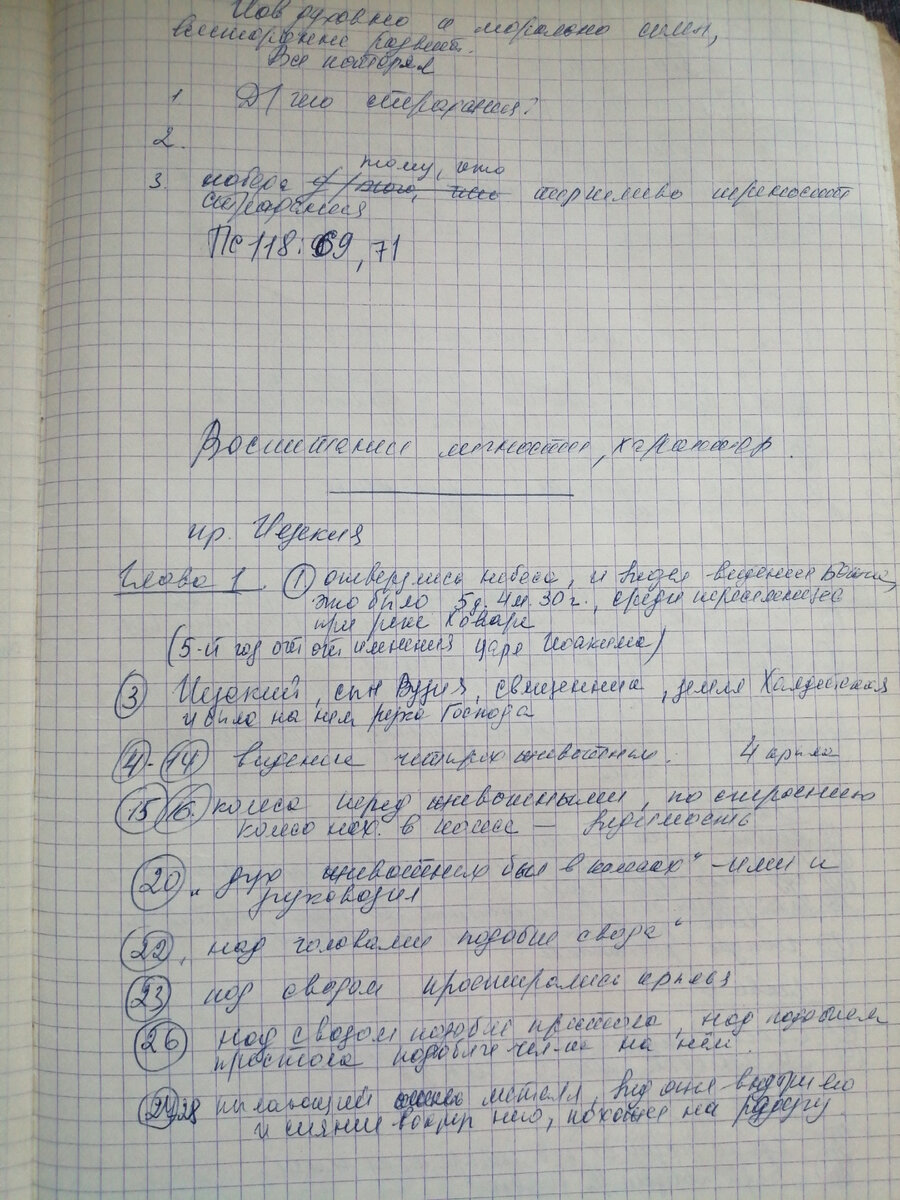 Иов духовно и морально силен,
всесторонне развит.
Все потерял
1 Д/чего страдания?
2.
тому, что
3. победа терпеливо переносит
страдания
Пс 118:69, 71
Воспитание личности, характер.
пр. Иезекия
Глава 1. 1 отверзлись небеса, и видел видения Божии,
это было 5д. 4м. 30г., среди переселенцев
при реке Ховаре
(5-й год от пленения царя Иоакима)
3 Иезекий, сын Вузия, священника, земля Халдейская
и была на нем рука Господа
4-14 видение четырех животных. 4 крыла
15 16. колеса перед животными, по строению
колесо нах. в колесе — видимость
20 „дух животных был в колесах“ - ими и
руководил
22 „над головами подобие свода“
23 под сводом простирались крылья
26 над сводом подобие престола, над подобием
престола подобие чел-ка на нём.
27,28 пылающий металл, вид огня внутри его
и сияние вокруг него, похожее на радугу